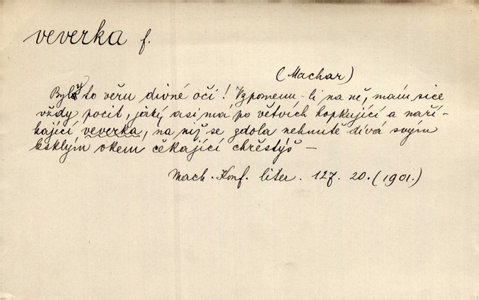 veverka f.
(Machar)
Byly to věru divné oči! Vzpomenu-li na ně, mám sice
vždy pocit, jaký asi má po větvích hopkující a naří-
kající veverka, na niž se zdola nehnutě dívá svým
lesklým okem čekající chřestýš –
Mach. Konf. liter. 127. 20. (1901.)